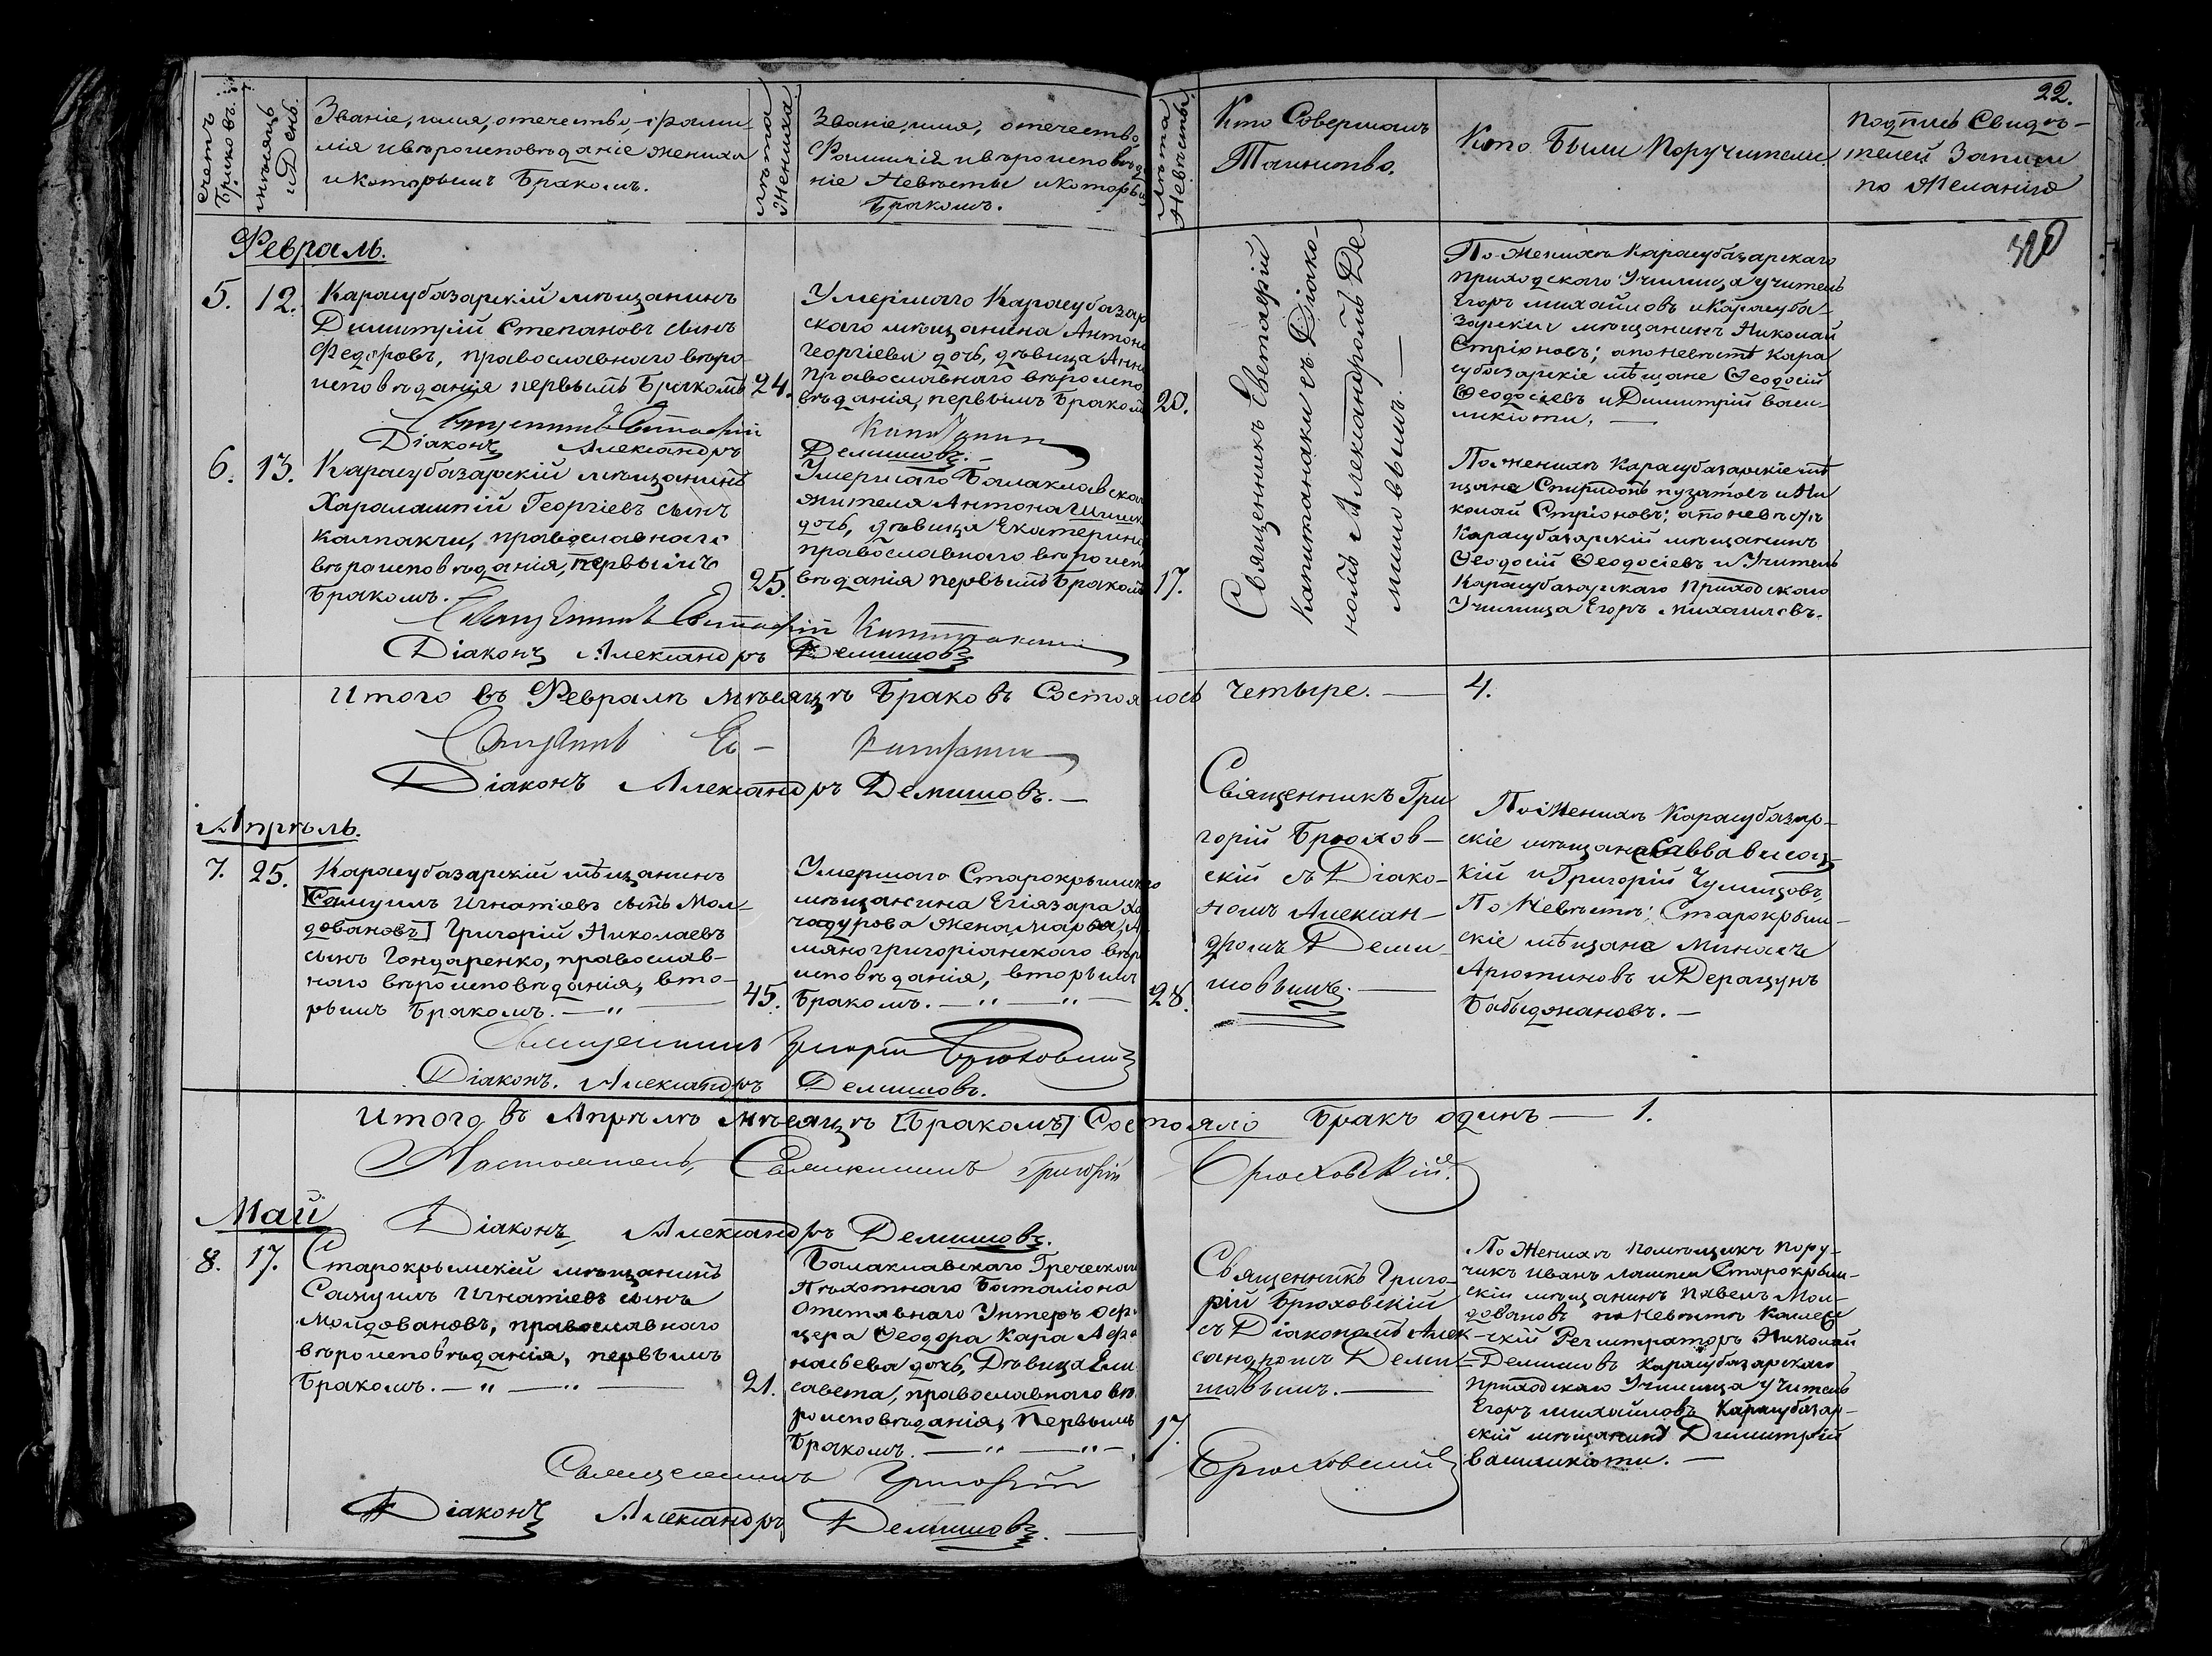 22.
320
Счетъ
Браковъ.
мѣсяцъ
и День.
Званіе, имя, отечество, фами-
лія и вѣроисповѣданіе жениха
и которымъ Бракомъ.
лѣта
Жениха.
Званіе, имя, отечество,
Фамилія и вѣроисповѣда
ніе Невѣсты и которым
Бракомъ.
Лѣта
Невѣсты.
Кто Совершалъ
Таинство.
Кто Были Поручители
Подпись Свидѣ-
телей Записи
по Желанію
Февраль.
5.
12.
Карасубазарскій мѣщанинъ
Димитрій Степановъ сынъ
Федоровъ, православнаго вѣро
исповѣданія первымъ Бракомъ
24.
Умершаго Карасубазар
скаго мѣщанина Антона
Георгіева дочь, дѣвица Анна
православнаго вѣроиспо
вѣданія, первымъ Браком
20.
Священникъ Евстафій
Капитанаки съ Діако-
номъ Александромъ Де-
мишовымъ. —
По Женихѣ Карасубазарскаго
приходскаго Училища учитель
Егоръ михайловъ и Карасуба-
зарскіи мѣщанинъ Николай
Стріоновъ; а по невѣстѣ Кара
субазарскіе мѣщане Ѳеодосій
Ѳеодосіевъ и Димитрій васи-
ликіоти. —
Священникъ Евстафій
Капитанаки
Діаконъ Александръ
Демишовъ. —
6.
13.
Карасубазарскій мѣщанинъ
Харалампій Георгіевъ сынъ
Калпакчи, православнаго
вѣроисповѣданія, первымъ
Бракомъ.
25.
Умершаго Балаклавскаг
жителя Антона
дочь, дѣвица Екатерина
православнаго вѣроиспо
вѣданія первымъ Бракомъ
17.
По женихѣ Карасубазарскіе мѣ
щане Спиридонъ пузатовъ и Ни
колай Стріоновъ; а по невѣстѣ
Карасубазарскій мѣщанинъ
Ѳеодосій Ѳеодосіевъ и Учитель
Карасубазарскаго Приходскаго
Училища Егоръ михаиловъ.
Священникъ Евстафій Капитанаки
Діаконъ Александръ Демишовъ
Итого въ Февралѣ мѣсяцѣ Браковъ Состоялось четыре. — 4.
Священникъ Ев- Капитанаки
Діаконъ Александръ Демишовъ. —
Апрѣль.
7.
25.
Карасубазарскій мѣщанинъ
[Самуилъ Игнатіевъ сынъ Мол-
довановъ] Григорій Николаевъ
сынъ Гондаренко, православ-
наго вѣроисповѣданія, вто-
рымъ Бракомъ. — " —
45.
Умершаго Старокрымскаго
мѣщанина Егіязара Ха
чадурова жена Марѳа, А
мяногригоріанскаго вѣро
исповѣданія, вторымъ
Бракомъ. — " — " —
28.
Свіященникъ Гри
горій Брюхов-
скій съ Діако-
номъ Алексан-
дромъ Деми-
шовымъ. —
По Женихѣ Карасубазар-
скіе мѣщане Савва высоц-
кій и Григорій Чумицовъ,
По Невѣстѣ: Старокрым-
скіе мѣщане Минасъ
Арютиновъ и Дерацунъ
Бабыджановъ. —
Священникъ Григорій Брюховскій
Діаконъ. Александръ Демишовъ.
Итого въ Апрѣлѣ мѣсяцѣ [Бракомъ] Состояло Бракъ одинъ — 1.
Настоятель, Священникъ Григорій Брюховскій.
Діаконъ Александръ Демишовъ.
Май
8.
17.
Старокрымскій мѣщанинъ
Самуилъ Игнатіевъ сынъ
Молдовановъ, православнаго
вѣроисповѣданія, первымъ
Бракомъ. — " — " —
21.
Балаклавскаго Греческаго
Пѣхотнаго Баталіона
Отставнаго Унтеръ Офи
цера Ѳеодора Кара Афа
насьева дочь, Дѣвица Ели
савета, православнаго вѣ
роисповѣданія, Первымъ
Бракомъ. — " — " —
17.
Священникъ Григо-
рій Брюховскій
съ Діакономъ Алек-
сандромъ Деми-
шовымъ. —
По Женихѣ Помѣщикъ Пору-
чикъ Иванъ Лампси Старокрым-
скіи мѣщанинъ Павелъ Мол-
довановъ по Невѣстѣ Коллеж-
скій Регистраторъ Николай
Демишовъ Карасубазарскаго
Приходскаго Училища Учитель
Егоръ михайловъ Карасубазар-
скій мѣщанинъ Димитрій
василикіоти. —
Священникъ Григорій Брюховскій
Діаконъ Александръ Демишовъ. —